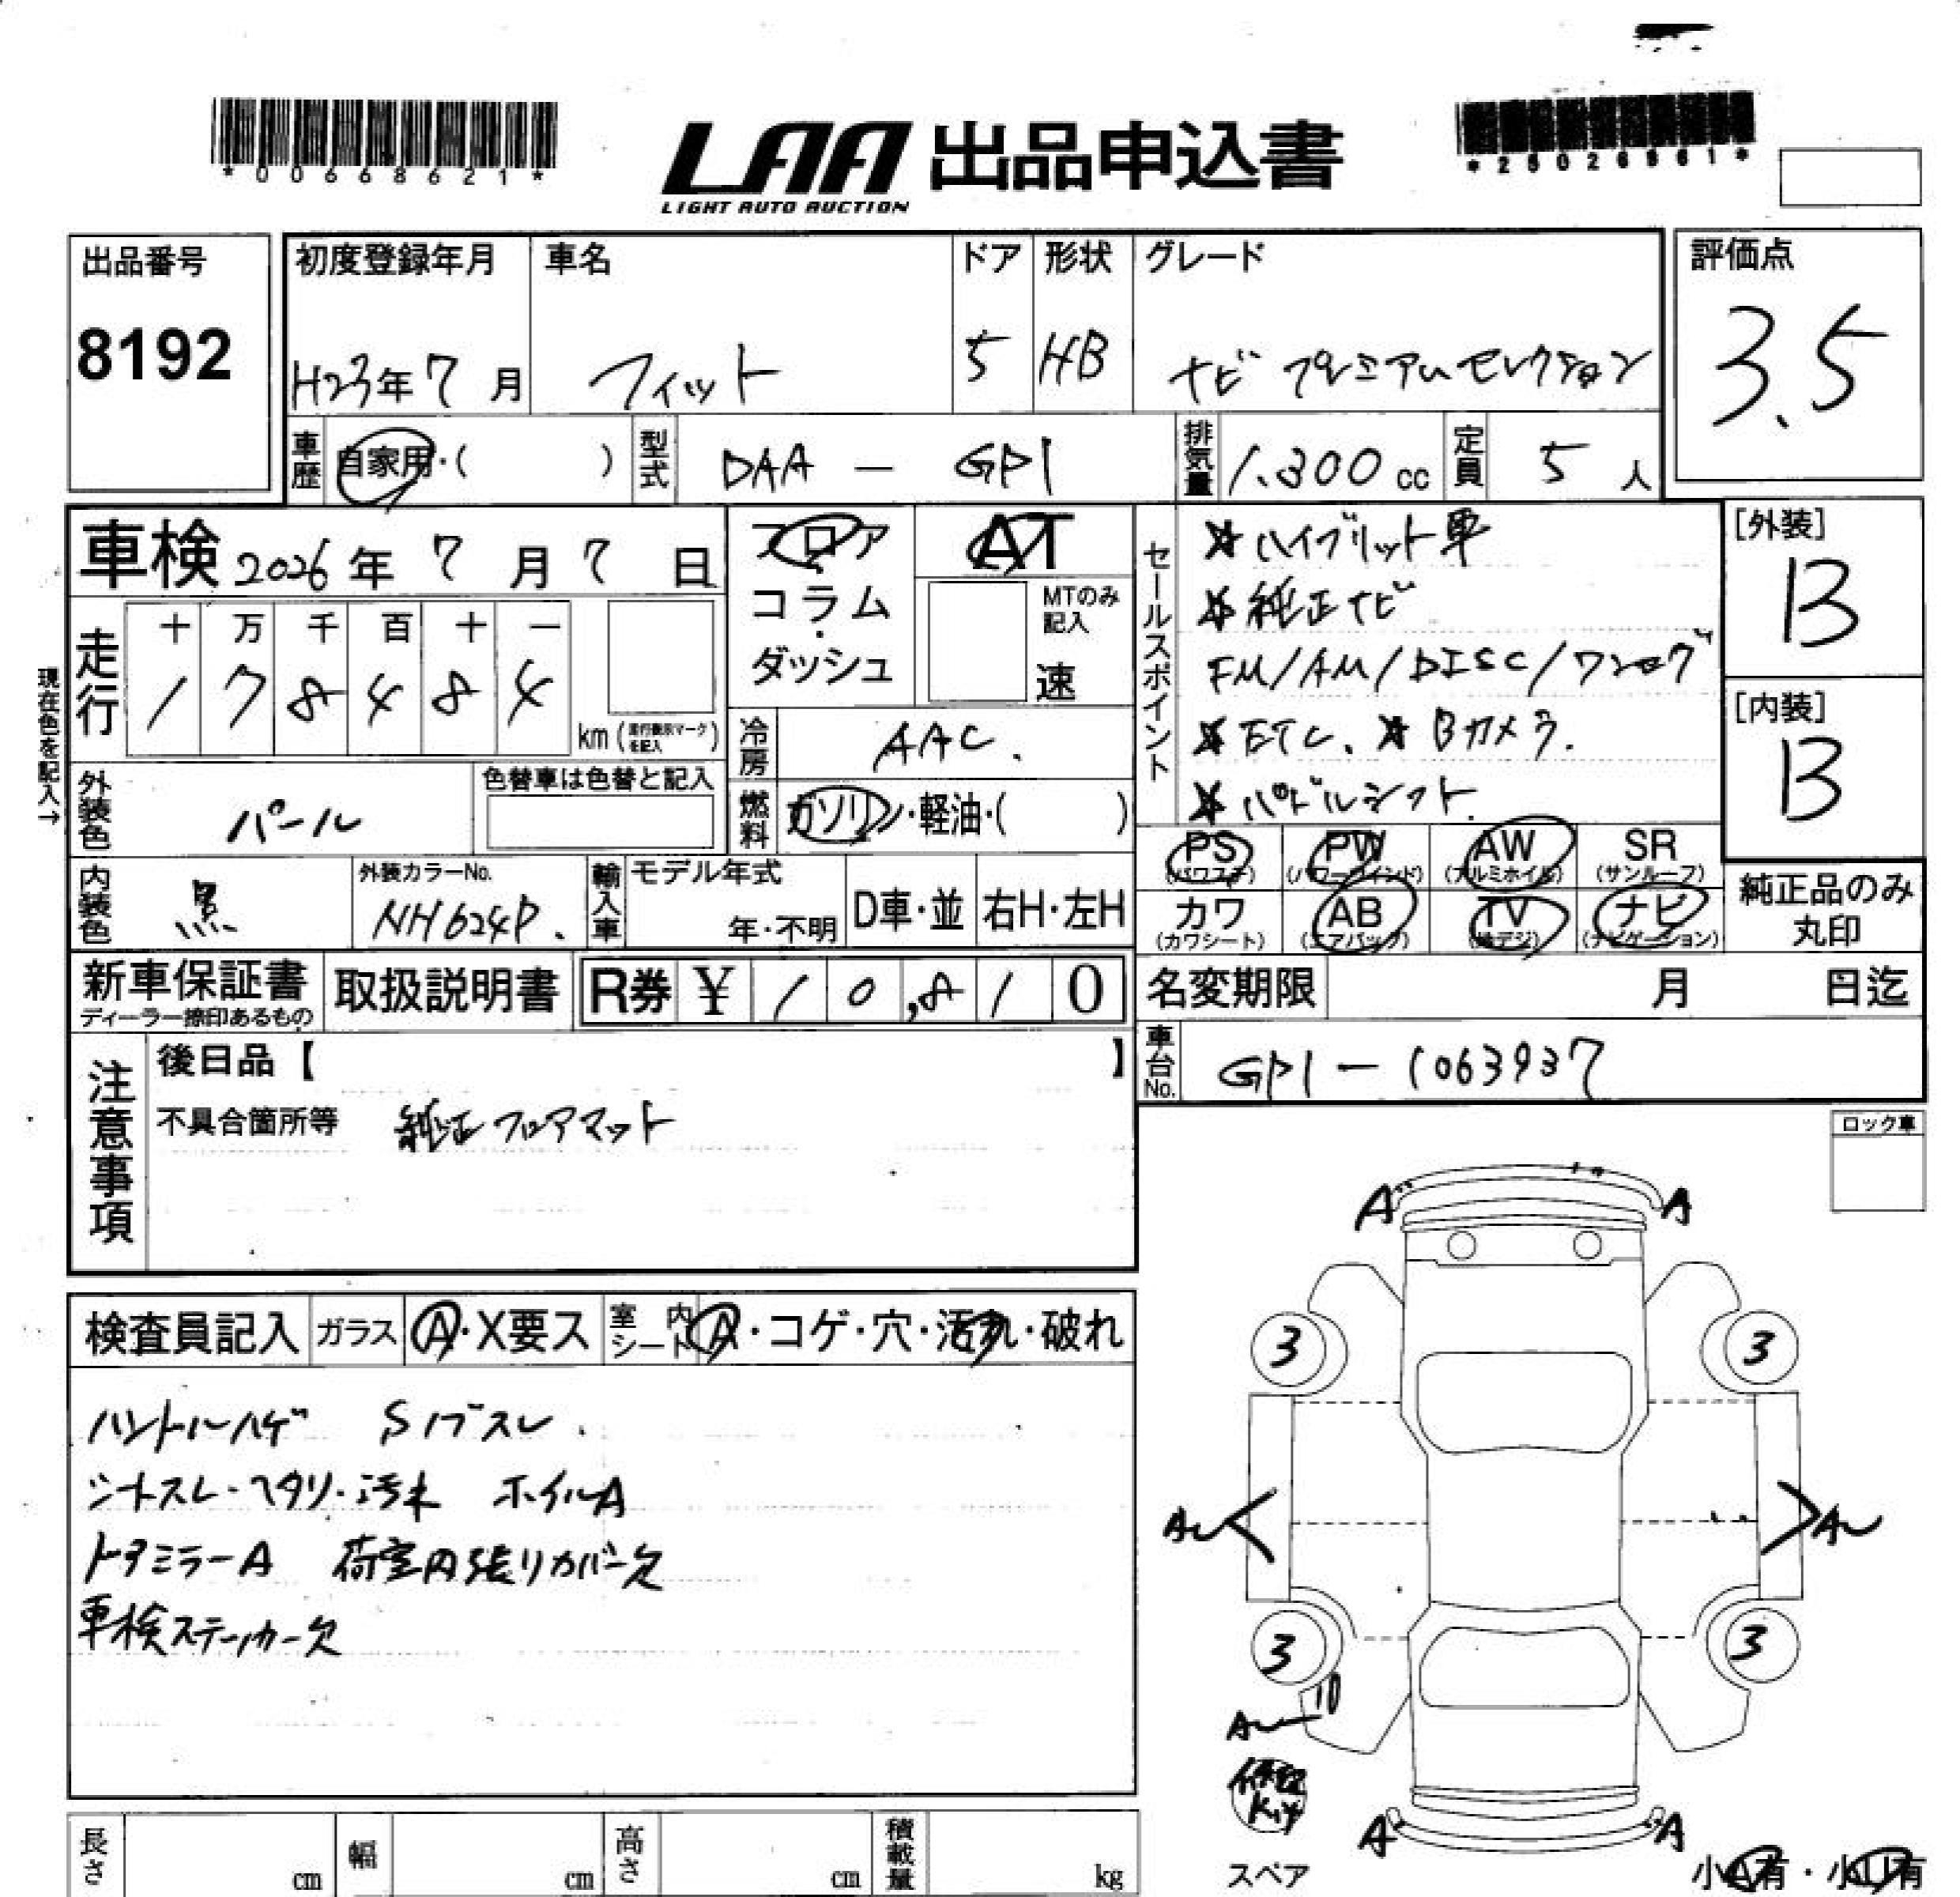 *00668621*
LAA 出品申込書
LIGHT AUTO AUCTION
*25026561*
出品番号 8192
初度登録年月 H23年 7月
車名 フィット
ドア 5
形状 HB
グレード ナビ プレミアムセレクション
評価点 3.5
車歴 自家用・( )
型式 DAA － GP1
排気量 1.300 cc
定員 5 人
車検 2026年 7月 7日
フロア・コラム・ダッシュ
AT
MTのみ記入
速
現在色を記入→
走行 十 万 千 百 十 一
1 7 8 4 8 4 km (走行表示マークを記入)
冷房 AAC.
燃料 ガソリン・軽油・( )
セールスポイント
★ハイブリット車
★純正ナビ
FM/AM/DISC/ワンセグ
★ETC、★Bカメラ.
★パドルシフト.
[外装] B
[内装] B
外装色 パール
色替車は色替と記入
内装色 黒
外装カラーNo. NH624P.
輸入車
モデル年式 年・不明
D車・並
右H・左H
PS (パワステ)
PW (パワーウィンド)
AW (アルミホイル)
SR (サンルーフ)
カワ (カワシート)
AB (エアバッグ)
TV (地デジ)
ナビ (ナビゲーション)
純正品のみ丸印
新車保証書
ディーラー捺印あるもの
取扱説明書
R券 ¥ 10,810
名変期限 月 日迄
車台No. GP1－1063937
注意事項
後日品【 】
不具合箇所等 純正フロアマット
ロック車
検査員記入
ガラス A・X要ス
室内シート A・コゲ・穴・汚れ・破れ
ハンドルハゲ Sノブスレ.
シートスレ・ヘタリ・汚れ ホイルA
ドアミラーA 荷室内張りカバー欠
車検ステッカー欠
A A
3 3
AU AU
3 3
AU 10
修理Kit
スペア
A A
小A有・小U有
長さ cm
幅 cm
高さ cm
積載量 kg